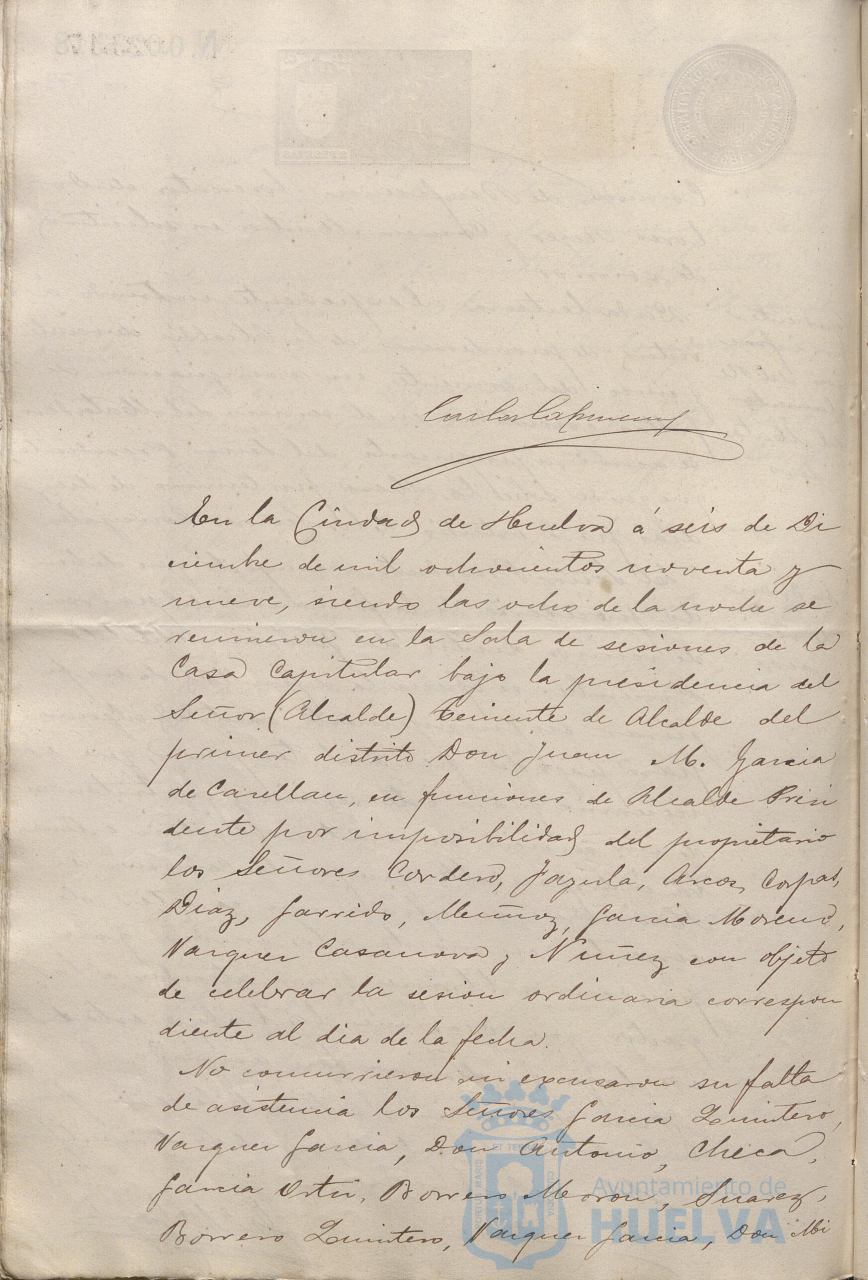 En la Ciudad de Huelva á seis de Di
ciembre de mil ochocientos noventa y
nueve, siendo las ocho de la noche se
reunieron en la Sala de sesiones de la
Casa Capitular bajo la presidencia del
Señor (Alcalde) Teniente de Alcalde del
primer distrito Don Juan M. Garcia
de Casellan, en funciones de Alcalde Presi
dente por imposibilidad del propietario
los Señores Cordero, Jazula, Arcos, Corpas,
Diaz, Garrido, Muñoz, Garcia Moreno,
Vazquez Casanova y Nuñez con objeto
de celebrar la sesion ordinaria correspon
diente al dia de la fecha.
No concurrieron ni excusaron su falta
de asistencia los Señores Garcia Quintero,
Vazquez Garcia, Don Antonio, Checa,
Garcia Ortiz, Borrero Moron, Suarez,
Borrero Quintero, Vazquez Garcia, Don Mi
Ayuntamiento de
HUELVA